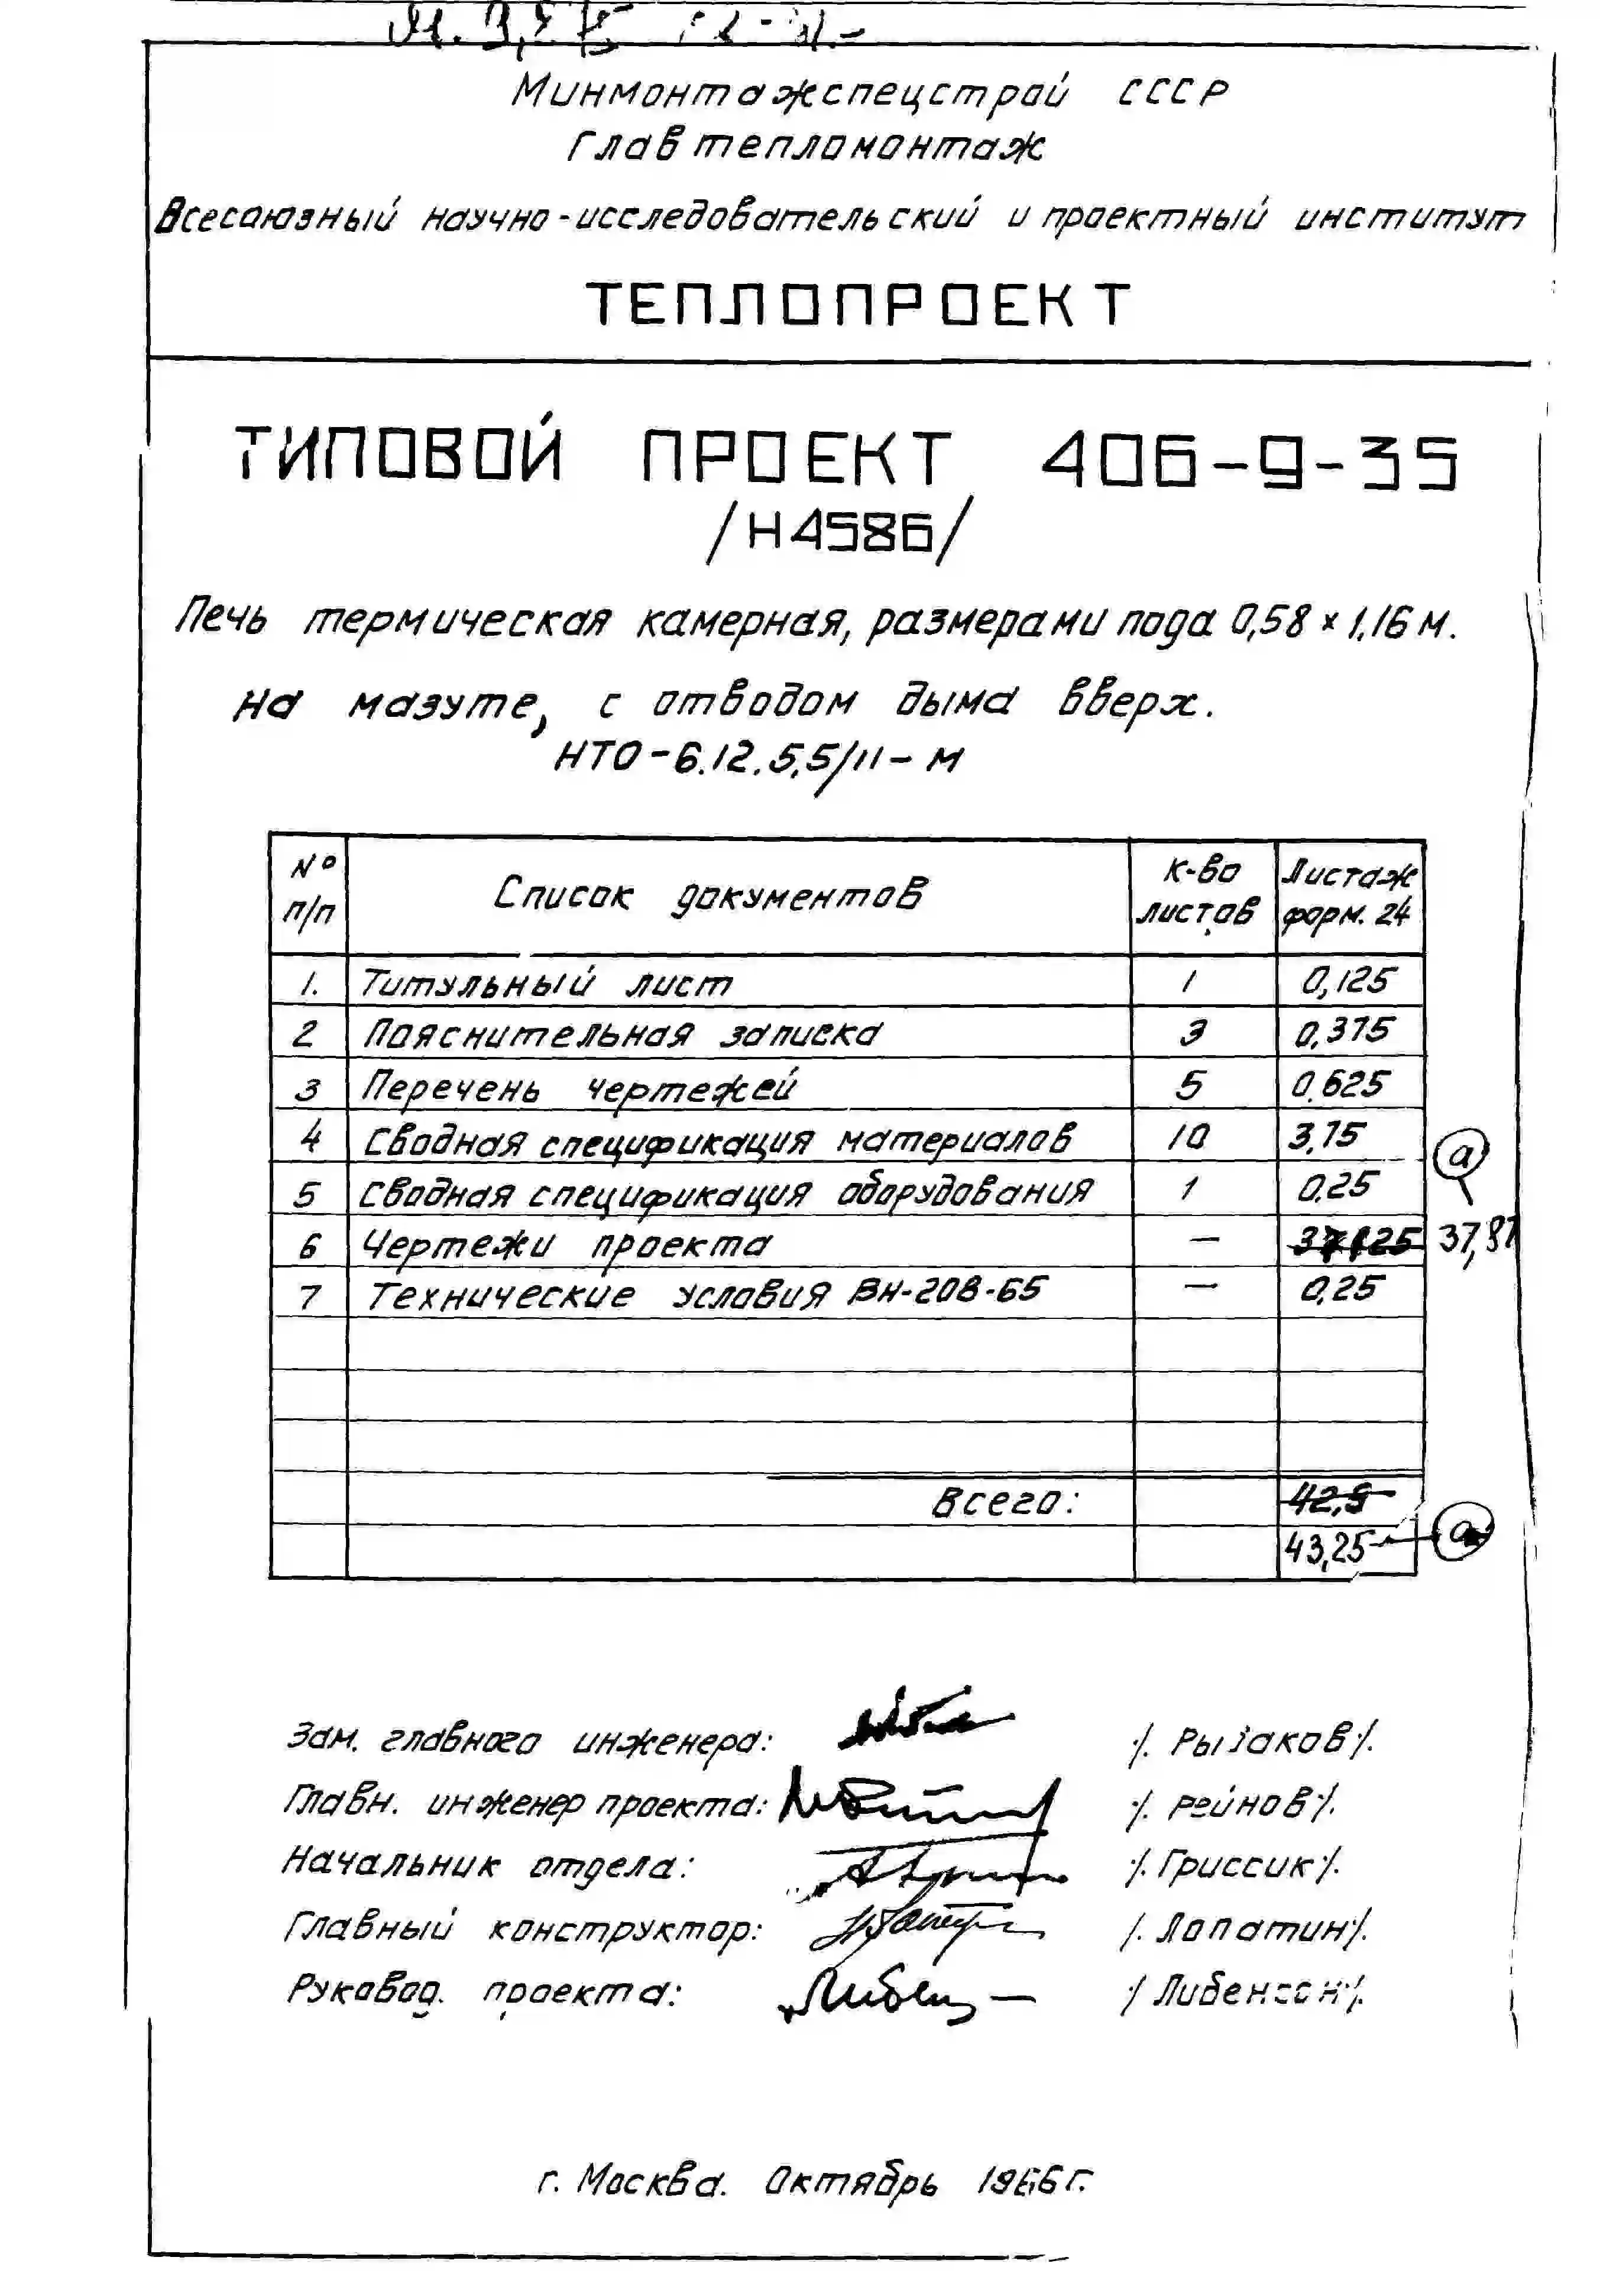 Минмонтажспецстрой СССР
Главтепломонтаж
Всесоюзный научно-исследовательский и проектный институт
ТЕПЛОПРОЕКТ
ТИПОВОЙ ПРОЕКТ 406-9-35
/Н4586/
Печь термическая камерная, размерами пода 0,58 × 1,16 м.
на мазуте, с отводом дыма вверх.
НТО-6.12.5,5/11-М
№ п/п Список документов К-во листов Листаж форм. 24
1. Титульный лист 1 0,125
2 Пояснительная записка 3 0,375
3 Перечень чертежей 5 0,625
4 Сводная спецификация материалов 10 3,75
а
5 Сводная спецификация оборудования 1 0,25
6 Чертежи проекта — 37,87
7 Технические условия ВН-208-65 — 0,25
Всего: 42,9
43,25 а
Зам. главного инженера: /. Рызаков ./.
Главн. инженер проекта: ./. Рейнов ./.
Начальник отдела: ./. Гриссик ./.
Главный конструктор: /. Лопатин ./.
Руковод. проекта: ./ Либенсон ./.
г. Москва. Октябрь 1966 г.